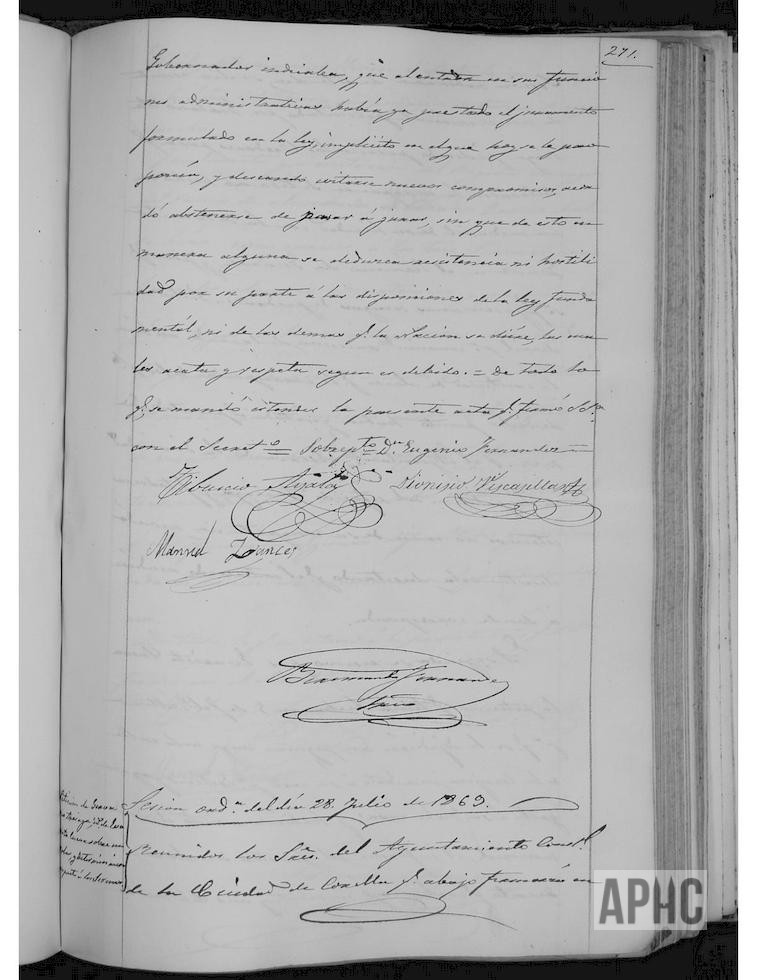 271.
Gobernador indicaba, que al entrar en sus funcio
nes administrativas había ya prestado el juramento
formulado en la ley, implícito en el que hoy se le pro
ponía, y deseando evitarse nuevos compromisos, acor
dó abstenerse de pasar á jurar, sin que de esto en
manera alguna se deduzca resistencia ni hostili
dad por su parte á las disposiciones de la ley funda
mentál, ni de las demas q.e la Nación se diére, las cua
les acata y respeta segun es debido. = De todo lo
q.e se mandó estender la presente acta q.e firmó S.S.a
con el Secret.o = Sobrep.to D.n Eugenio Fernandez =
Tiburcio
Dionisio Vizcapillan
Manuel
Fernandez
Srio
Sesion ord.a del día 28. Julio de 1869.
Reunidos los Sres. del Ayuntamiento Const.l
de la Ciudad de Coella q.e abajo firmarán en
APHC